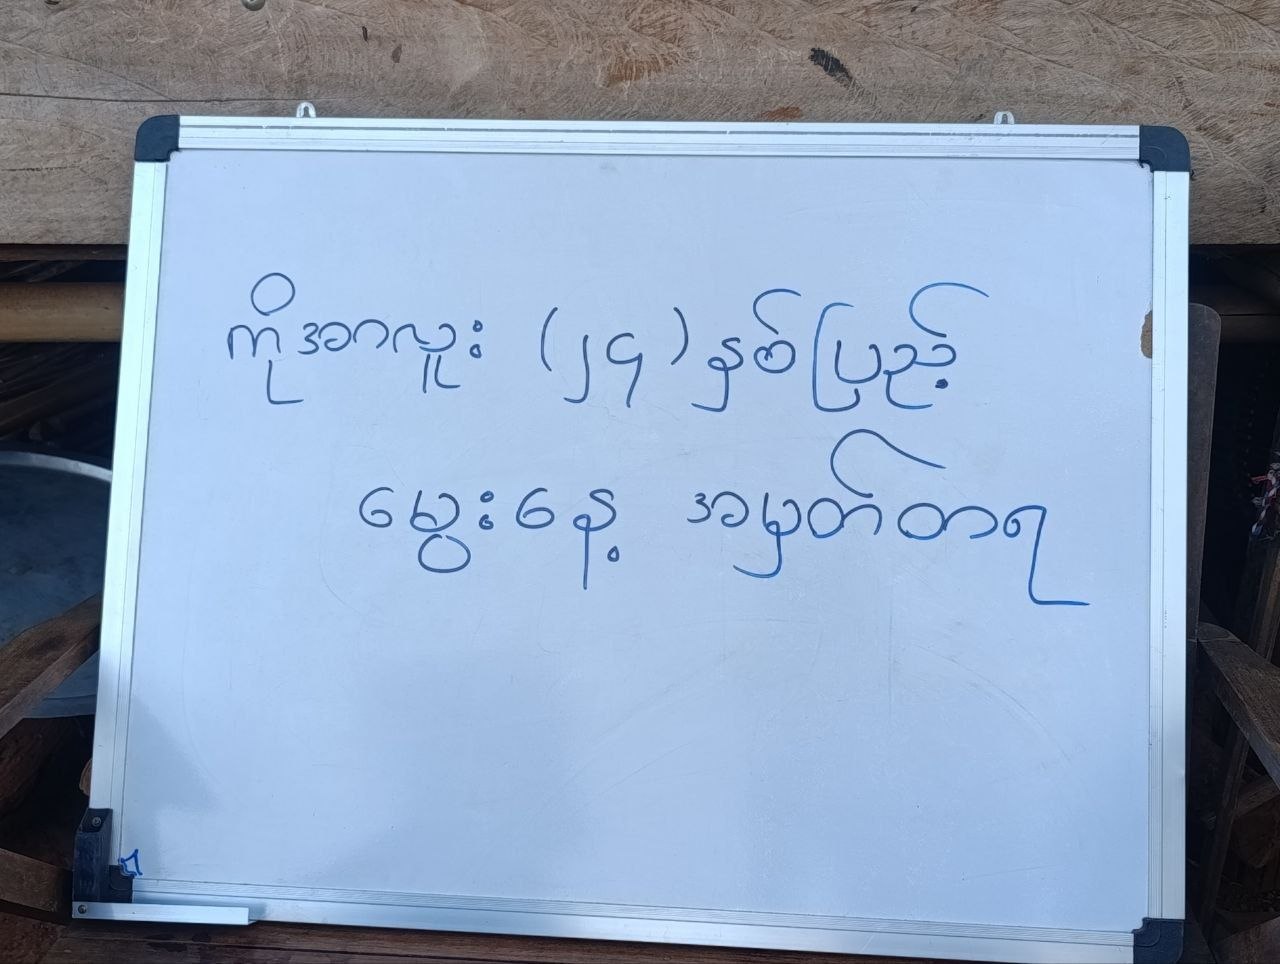 ကိုအာလူး (၂၄) နှစ်ပြည့်
မွေးနေ့ အမှတ်တရ